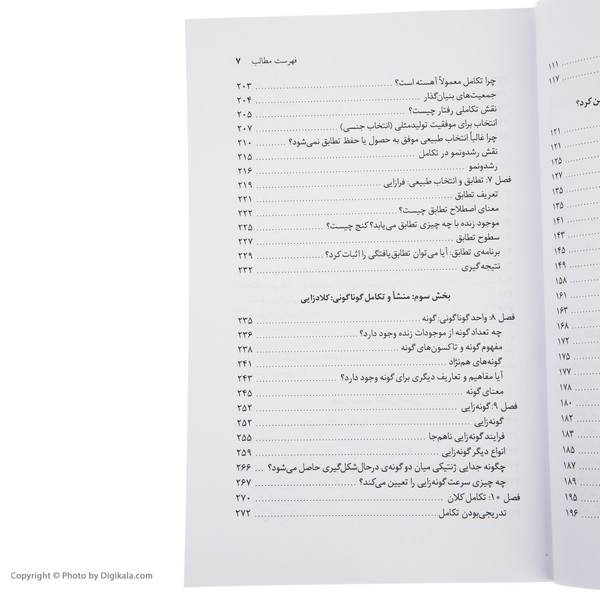 فهرست مطالب ۷
چرا تکامل معمولاً آهسته است؟ ۲۰۳
جمعیت‌های بنیان‌گذار ۲۰۴
نقش تکاملی رفتار چیست؟ ۲۰۵
انتخاب برای موفقیت تولیدمثلی (انتخاب جنسی) ۲۰۷
چرا غالباً انتخاب طبیعی موفق به حصول یا حفظ تطابق نمی‌شود؟ ۲۱۰
نقش رشدونمو در تکامل ۲۱۵
رشدونمو ۲۱۶
فصل ۷: تطابق و انتخاب طبیعی: فرازایی ۲۱۹
تعریف تطابق ۲۲۱
معنای اصطلاح تطابق چیست؟ ۲۲۲
موجود زنده با چه چیزی تطابق می‌یابد؟ کنج چیست؟ ۲۲۵
سطوح تطابق ۲۲۷
برنامه‌ی تطابق: آیا می‌توان تطابق‌یافتگی را اثبات کرد؟ ۲۲۹
نتیجه‌گیری ۲۳۲
بخش سوم: منشأ و تکامل گوناگونی: کلادزایی
فصل ۸: واحد گوناگونی: گونه ۲۳۵
چه تعداد گونه از موجودات زنده وجود دارد؟ ۲۳۶
مفهوم گونه و تاکسون‌های گونه ۲۳۸
گونه‌های هم‌نژاد ۲۴۱
آیا مفاهیم و تعاریف دیگری برای گونه وجود دارد؟ ۲۴۳
معنای گونه ۲۴۵
فصل ۹: گونه‌زایی ۲۵۲
گونه‌زایی ۲۵۲
فرایند گونه‌زایی ناهم‌جا ۲۵۵
انواع دیگر گونه‌زایی ۲۵۹
چگونه جدایی ژنتیکی میان دو گونه‌ی درحال‌شکل‌گیری حاصل می‌شود؟ ۲۶۶
چه چیزی سرعت گونه‌زایی را تعیین می‌کند؟ ۲۶۷
فصل ۱۰: تکامل کلان ۲۷۰
تدریجی‌بودن تکامل ۲۷۲
۱۱۱
۱۱۷
کرد؟
۱۲۱
۱۲۱
۱۲۵
۱۲۷
۱۳۵
۱۳۵
۱۴۱
۱۴۳
۱۴۵
۱۴۹
۱۵۸
۱۶۱
۱۶۳
۱۶۸
۱۷۲
۱۷۵
۱۷۷
۱۷۸
۱۸۰
۱۸۲
۱۸۳
۱۸۵
۱۸۷
۱۸۹
۱۹۵
۱۹۶
Copyright © Photo by Digikala.com